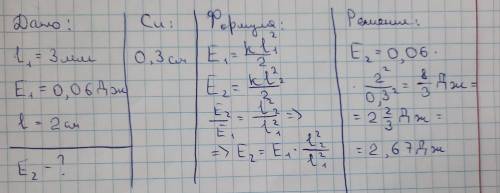 Дано:
l₁ = 3 мм
E₁ = 0,06 Дж
l = 2 см
E₂ = ?
Си:
0,3 см
Формула:
E₁ = kl₁²/2
E₂ = kl₂²/2
E₂/E₁ = l₂²/l₁² =>
=> E₂ = E₁ · l₂²/l₁²
Решение:
E₂ = 0,06 ·
· 2²/0,3² = 8/3 Дж =
= 2 2/3 Дж =
= 2,67 Дж